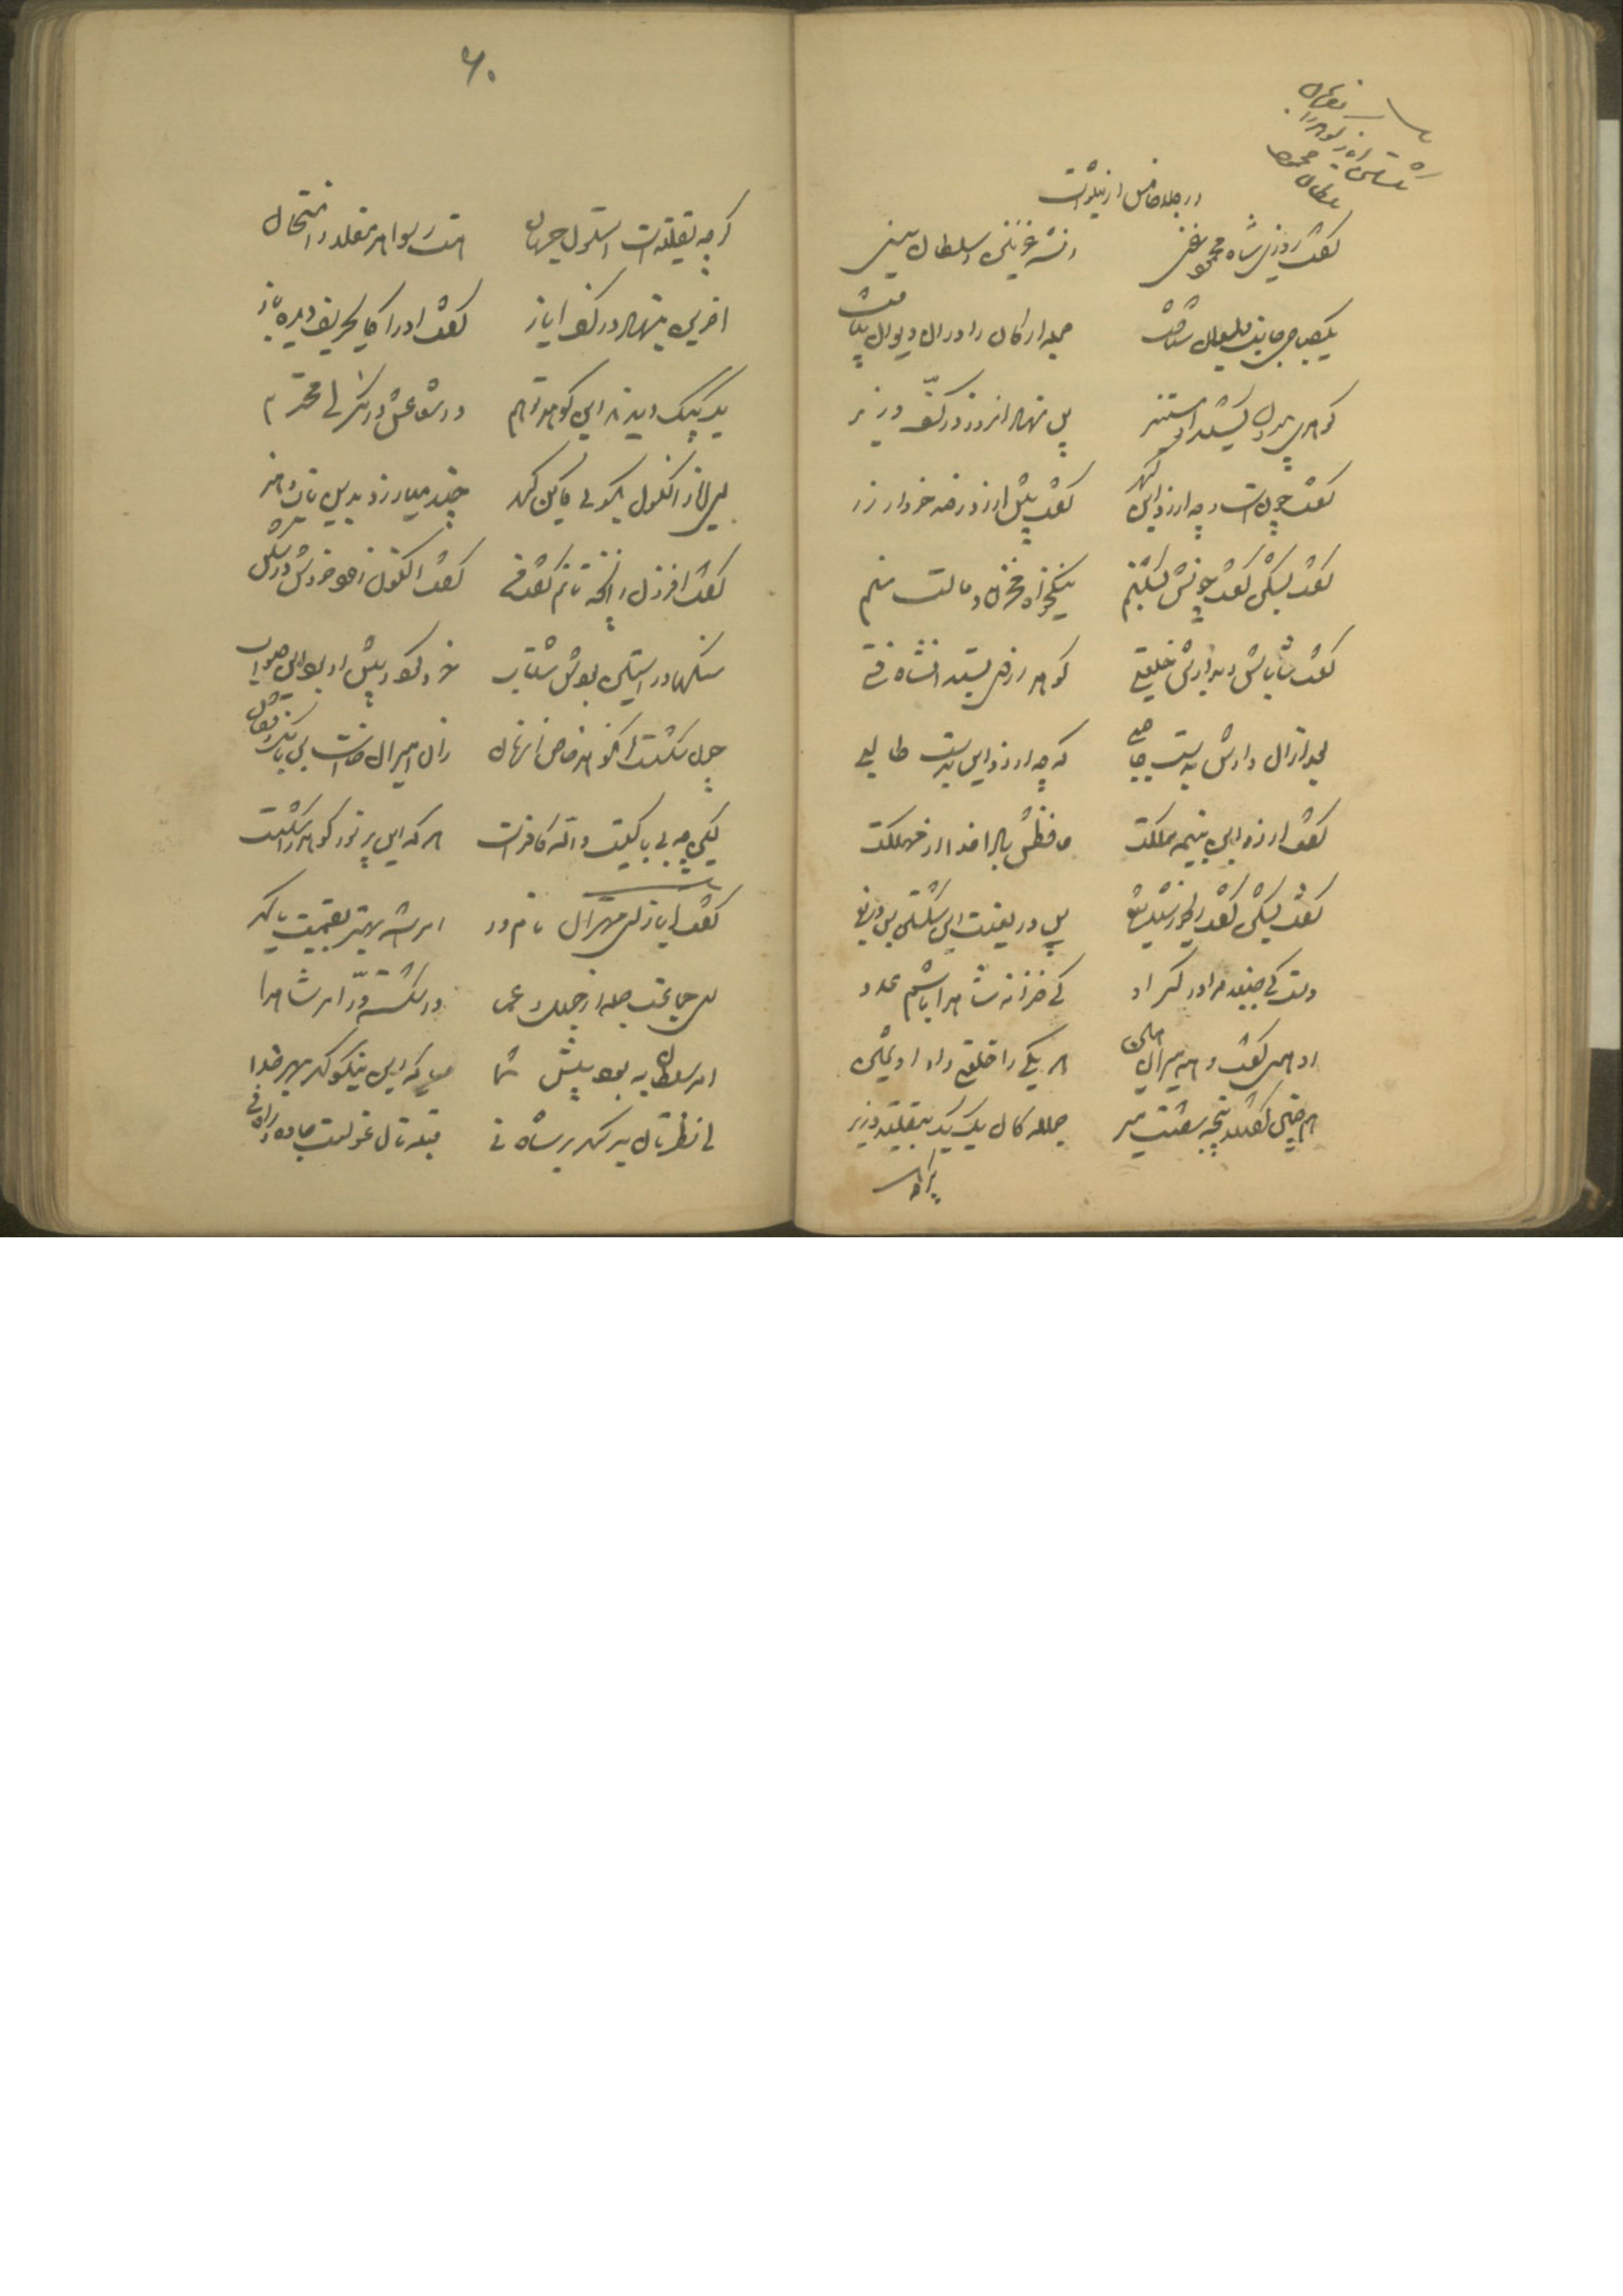 ۶۰
در جلد خامس از نیکلوست
گفت روزی شاه محمود غنی
آن شه غزنین و سلطان سنی
یک صباحی جانب دیوان شتافت
جمله ارکان را در آن دیوان بیافت
گوهری بیرون کشید او مستنیر
پس نهاد آن زود در کف وزیر
گفت چونست و چه ارزد این گهر
گفت بیش ارزد ز صد خروار زر
گفت بشکن گفت چونش بشکنم
نیکخواه مخزن و مالت منم
گفت شاباش و بدادش خلعتی
گوهر از وی بستد آن شاه فتی
بعد از آن دادش بدست حاجبی
که چه ارزد این بدست طالبی
گفت ارزد این به نیمه مملکت
حافظش بادا خدا از مهلکت
گفت بشکن گفت ای خورشید تیغ
پس دریغست این شکستن بس دریغ
دست کی جنبد مرا در کسر او
کی خزانه شاه را باشم عدو
او همین گفت و همه میران همین
هر یکی را خلعتی داد او ثمین
همچنین گفتند پنجه شصت میر
جمله یک یک به تقلید وزیر
گرچه تقلیدست استون جهان
هست رسوا هر مقلد ز امتحان
آخرین بنهاد در کف ایاز
گفت او را کای حریف دیده باز
یک به یک دیدند این گوهر تو هم
در شعاعش در نگر ای محترم
ای ایاز اکنون بگویی کاین گهر
چند می‌ارزد بدین تاب و هنر
گفت افزون ز آنچه تانم گفت من
گفت اکنون زود خردش در شکن
سنگها در آستین بودش شتاب
خرد کردش پیش او بود آن صواب
چون شکست او گوهر خاص آن زمان
زان امیران خاست بس بانگ و فغان
کین چه بی‌باکیست والله کافرست
هر که این پر نور گوهر را شکست
گفت ایاز ای مهتران نامور
امر شه بهتر به قیمت یا گهر
وان جماعت جمله از جهل و عما
در شکسته در امر شاه را
امر سلطان به بود پیش شما
یا که این نیکو گهر بهر خدا
ای نظرتان بر گهر بر شاه نی
قبله‌تان غولست جاده راه نی